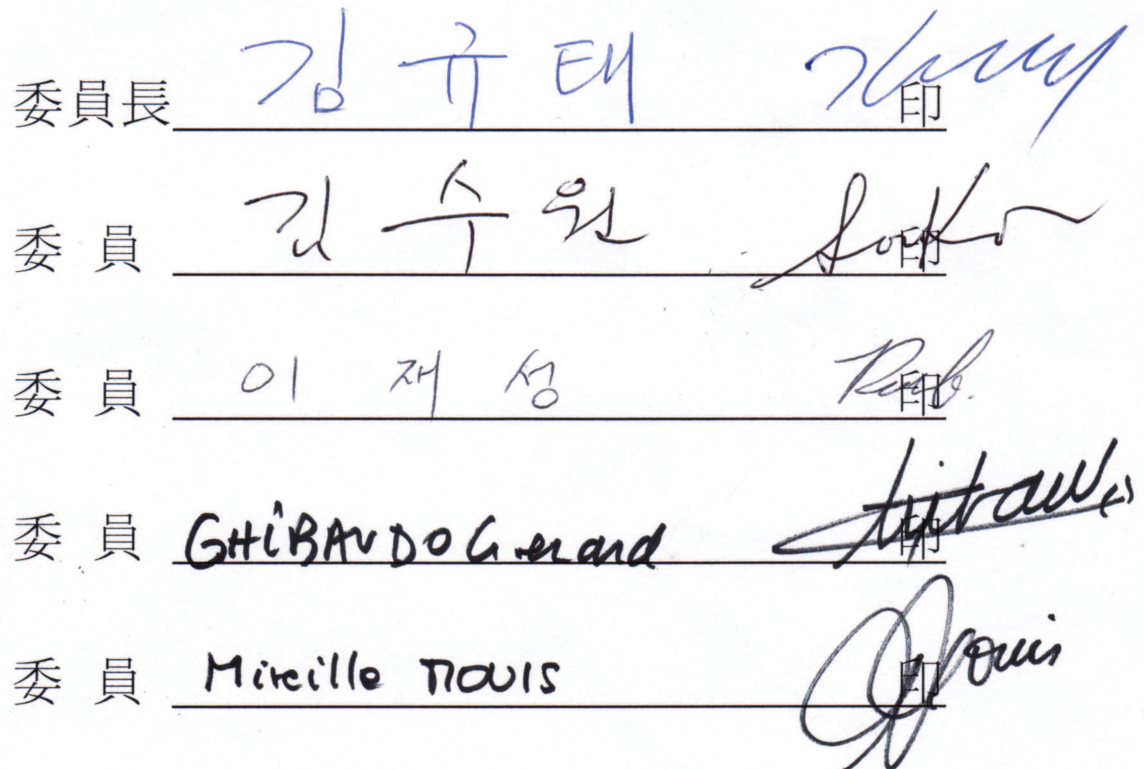 委員長 김 규 태 印
委 員 김 수 원 印
委 員 이 재 성 印
委 員 GHIBAUDO Gerard 印
委 員 Mireille MOUIS 印